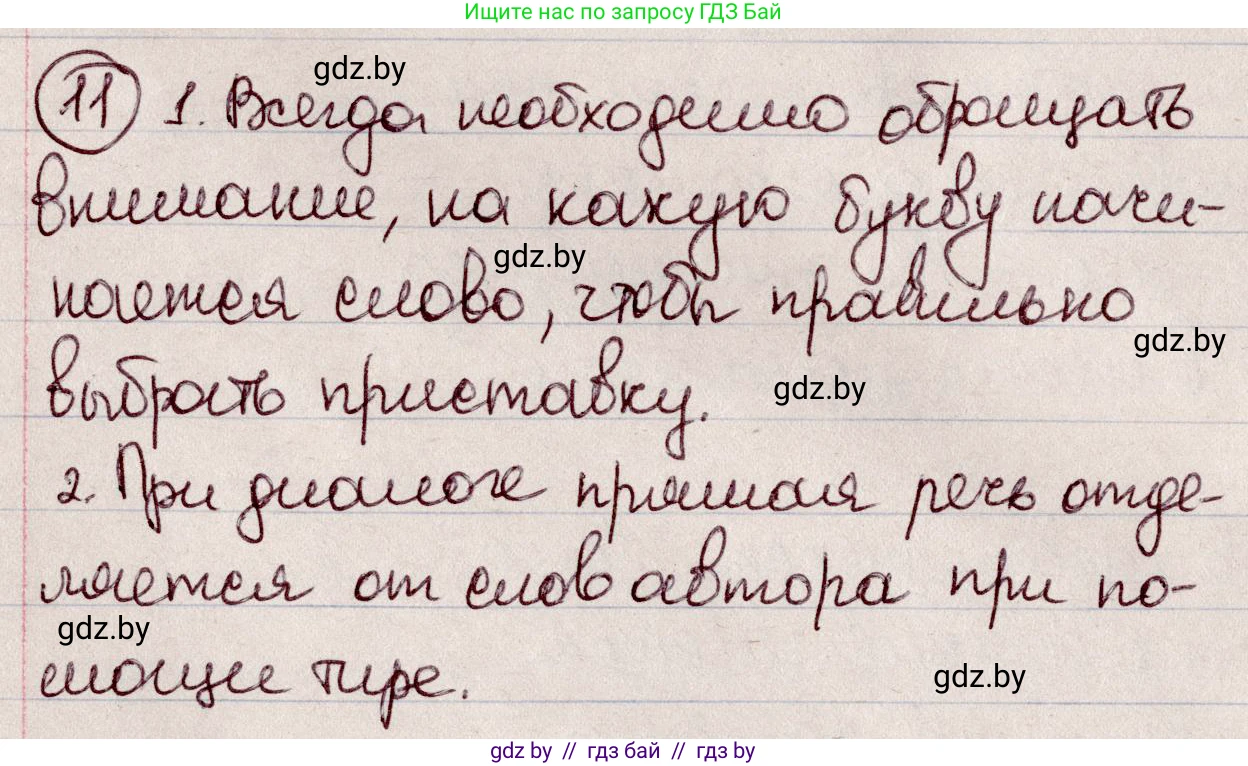 Ищите нас по запросу ГДЗ Бай
gdz.by
11 1. Всегда необходимо обращать
внимание, на какую букву начи-
gdz.by
нается слово, чтобы правильно
gdz.by
выбрать приставку.
gdz.by
2. При диалоге прямая речь отде-
ляется от слов автора при по-
gdz.by
мощи тире.
gdz.by
gdz by // гдз бай // гдз by